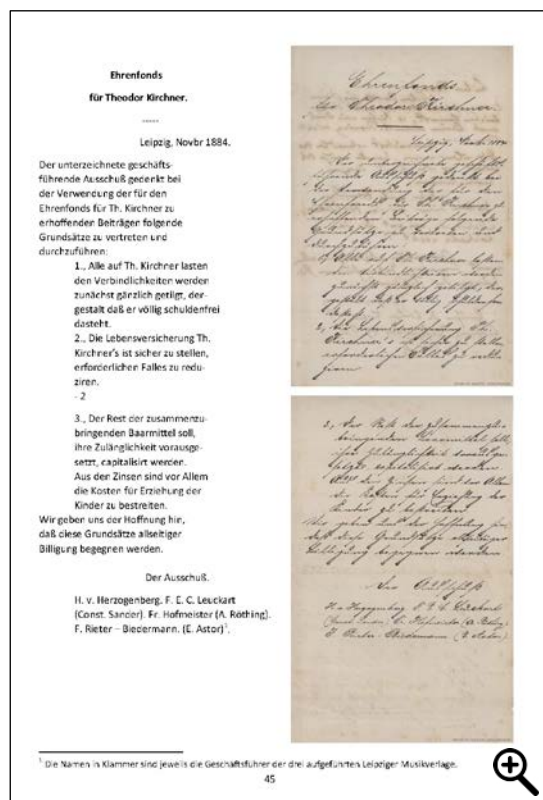 Ehrenfonds
für Theodor Kirchner.
-----
Leipzig, Novbr 1884.
Der unterzeichnete geschäfts-
führende Ausschuß gedenkt bei
der Verwendung der für den
Ehrenfonds für Th. Kirchner zu
erhoffenden Beiträgen folgende
Grundsätze zu vertreten und
durchzuführen:
1., Alle auf Th. Kirchner lasten
den Verbindlichkeiten werden
zunächst gänzlich getilgt, der-
gestalt daß er völlig schuldenfrei
dasteht.
2., Die Lebensversicherung Th.
Kirchner's ist sicher zu stellen,
erforderlichen Falles zu redu-
ziren.
- 2
3., Der Rest der zusammenzu-
bringenden Baarmittel soll,
ihre Zulänglichkeit vorausge-
setzt, capitalisirt werden.
Aus den Zinsen sind vor Allem
die Kosten für Erziehung der
Kinder zu bestreiten.
Wir geben uns der Hoffnung hin,
daß diese Grundsätze allseitiger
Billigung begegnen werden.
Der Ausschuß.
H. v. Herzogenberg. F. E. C. Leuckart
(Const. Sander). Fr. Hofmeister (A. Röthing).
F. Rieter – Biedermann. (E. Astor)¹.
Ehrenfonds
für Theodor Kirchner.
Leipzig, Novbr 1884.
Der unterzeichnete geschäfts-
führende Ausschuß gedenkt bei
der Verwendung der für den
Ehrenfonds für Th. Kirchner zu
erhoffenden Beiträge folgende
Grundsätze zu vertreten und
durchzuführen:
1., Alle auf Th. Kirchner lasten
den Verbindlichkeiten werden
zunächst gänzlich getilgt, der-
gestalt daß er völlig schuldenfrei
dasteht.
2., Die Lebensversicherung Th.
Kirchner's ist sicher zu stellen,
erforderlichen Falles zu redu-
ziren.
3., Der Rest der zusammenzu-
bringenden Baarmittel soll,
ihre Zulänglichkeit vorausge-
setzt, capitalisirt werden.
Aus den Zinsen sind vor Allem
die Kosten für Erziehung der
Kinder zu bestreiten.
Wir geben uns der Hoffnung hin,
daß diese Grundsätze allseitiger
Billigung begegnen werden.
Der Ausschuß
H. v. Herzogenberg. F. E. C. Leuckart
(Const. Sander). Fr. Hofmeister (A. Röthing).
F. Rieter-Biedermann (E. Astor)
¹ Die Namen in Klammer sind jeweils die Geschäftsführer der drei aufgeführten Leipziger Musikverlage.
45